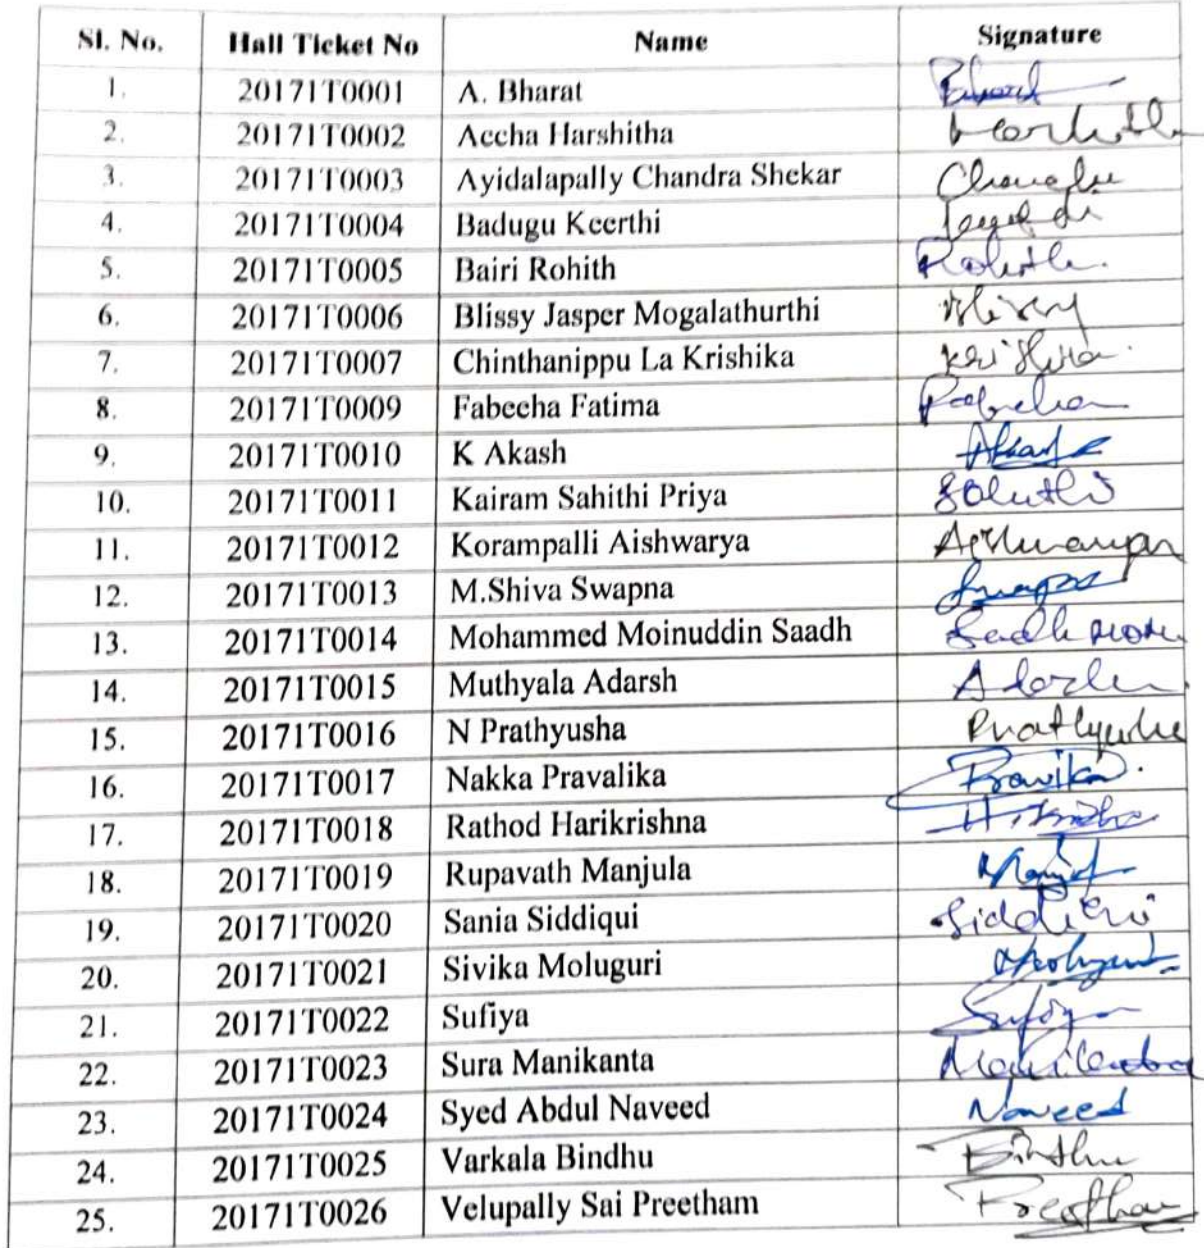 Sl. No. Hall Ticket No Name Signature
1. 20171T0001 A. Bharat Bharat
2. 20171T0002 Accha Harshitha Harshith
3. 20171T0003 Ayidalapally Chandra Shekar
4. 20171T0004 Badugu Keerthi
5. 20171T0005 Bairi Rohith Rohith.
6. 20171T0006 Blissy Jasper Mogalathurthi Blissy
7. 20171T0007 Chinthanippu La Krishika
8. 20171T0009 Fabeeha Fatima Fabeeha
9. 20171T0010 K Akash Akash
10. 20171T0011 Kairam Sahithi Priya Sahithi
11. 20171T0012 Korampalli Aishwarya Aishwarya
12. 20171T0013 M.Shiva Swapna Swapna
13. 20171T0014 Mohammed Moinuddin Saadh
14. 20171T0015 Muthyala Adarsh Adarsh
15. 20171T0016 N Prathyusha Prathyusha
16. 20171T0017 Nakka Pravalika
17. 20171T0018 Rathod Harikrishna
18. 20171T0019 Rupavath Manjula
19. 20171T0020 Sania Siddiqui
20. 20171T0021 Sivika Moluguri
21. 20171T0022 Sufiya Sufiya
22. 20171T0023 Sura Manikanta Manikanta
23. 20171T0024 Syed Abdul Naveed Naveed
24. 20171T0025 Varkala Bindhu Bindhu
25. 20171T0026 Velupally Sai Preetham Preetham